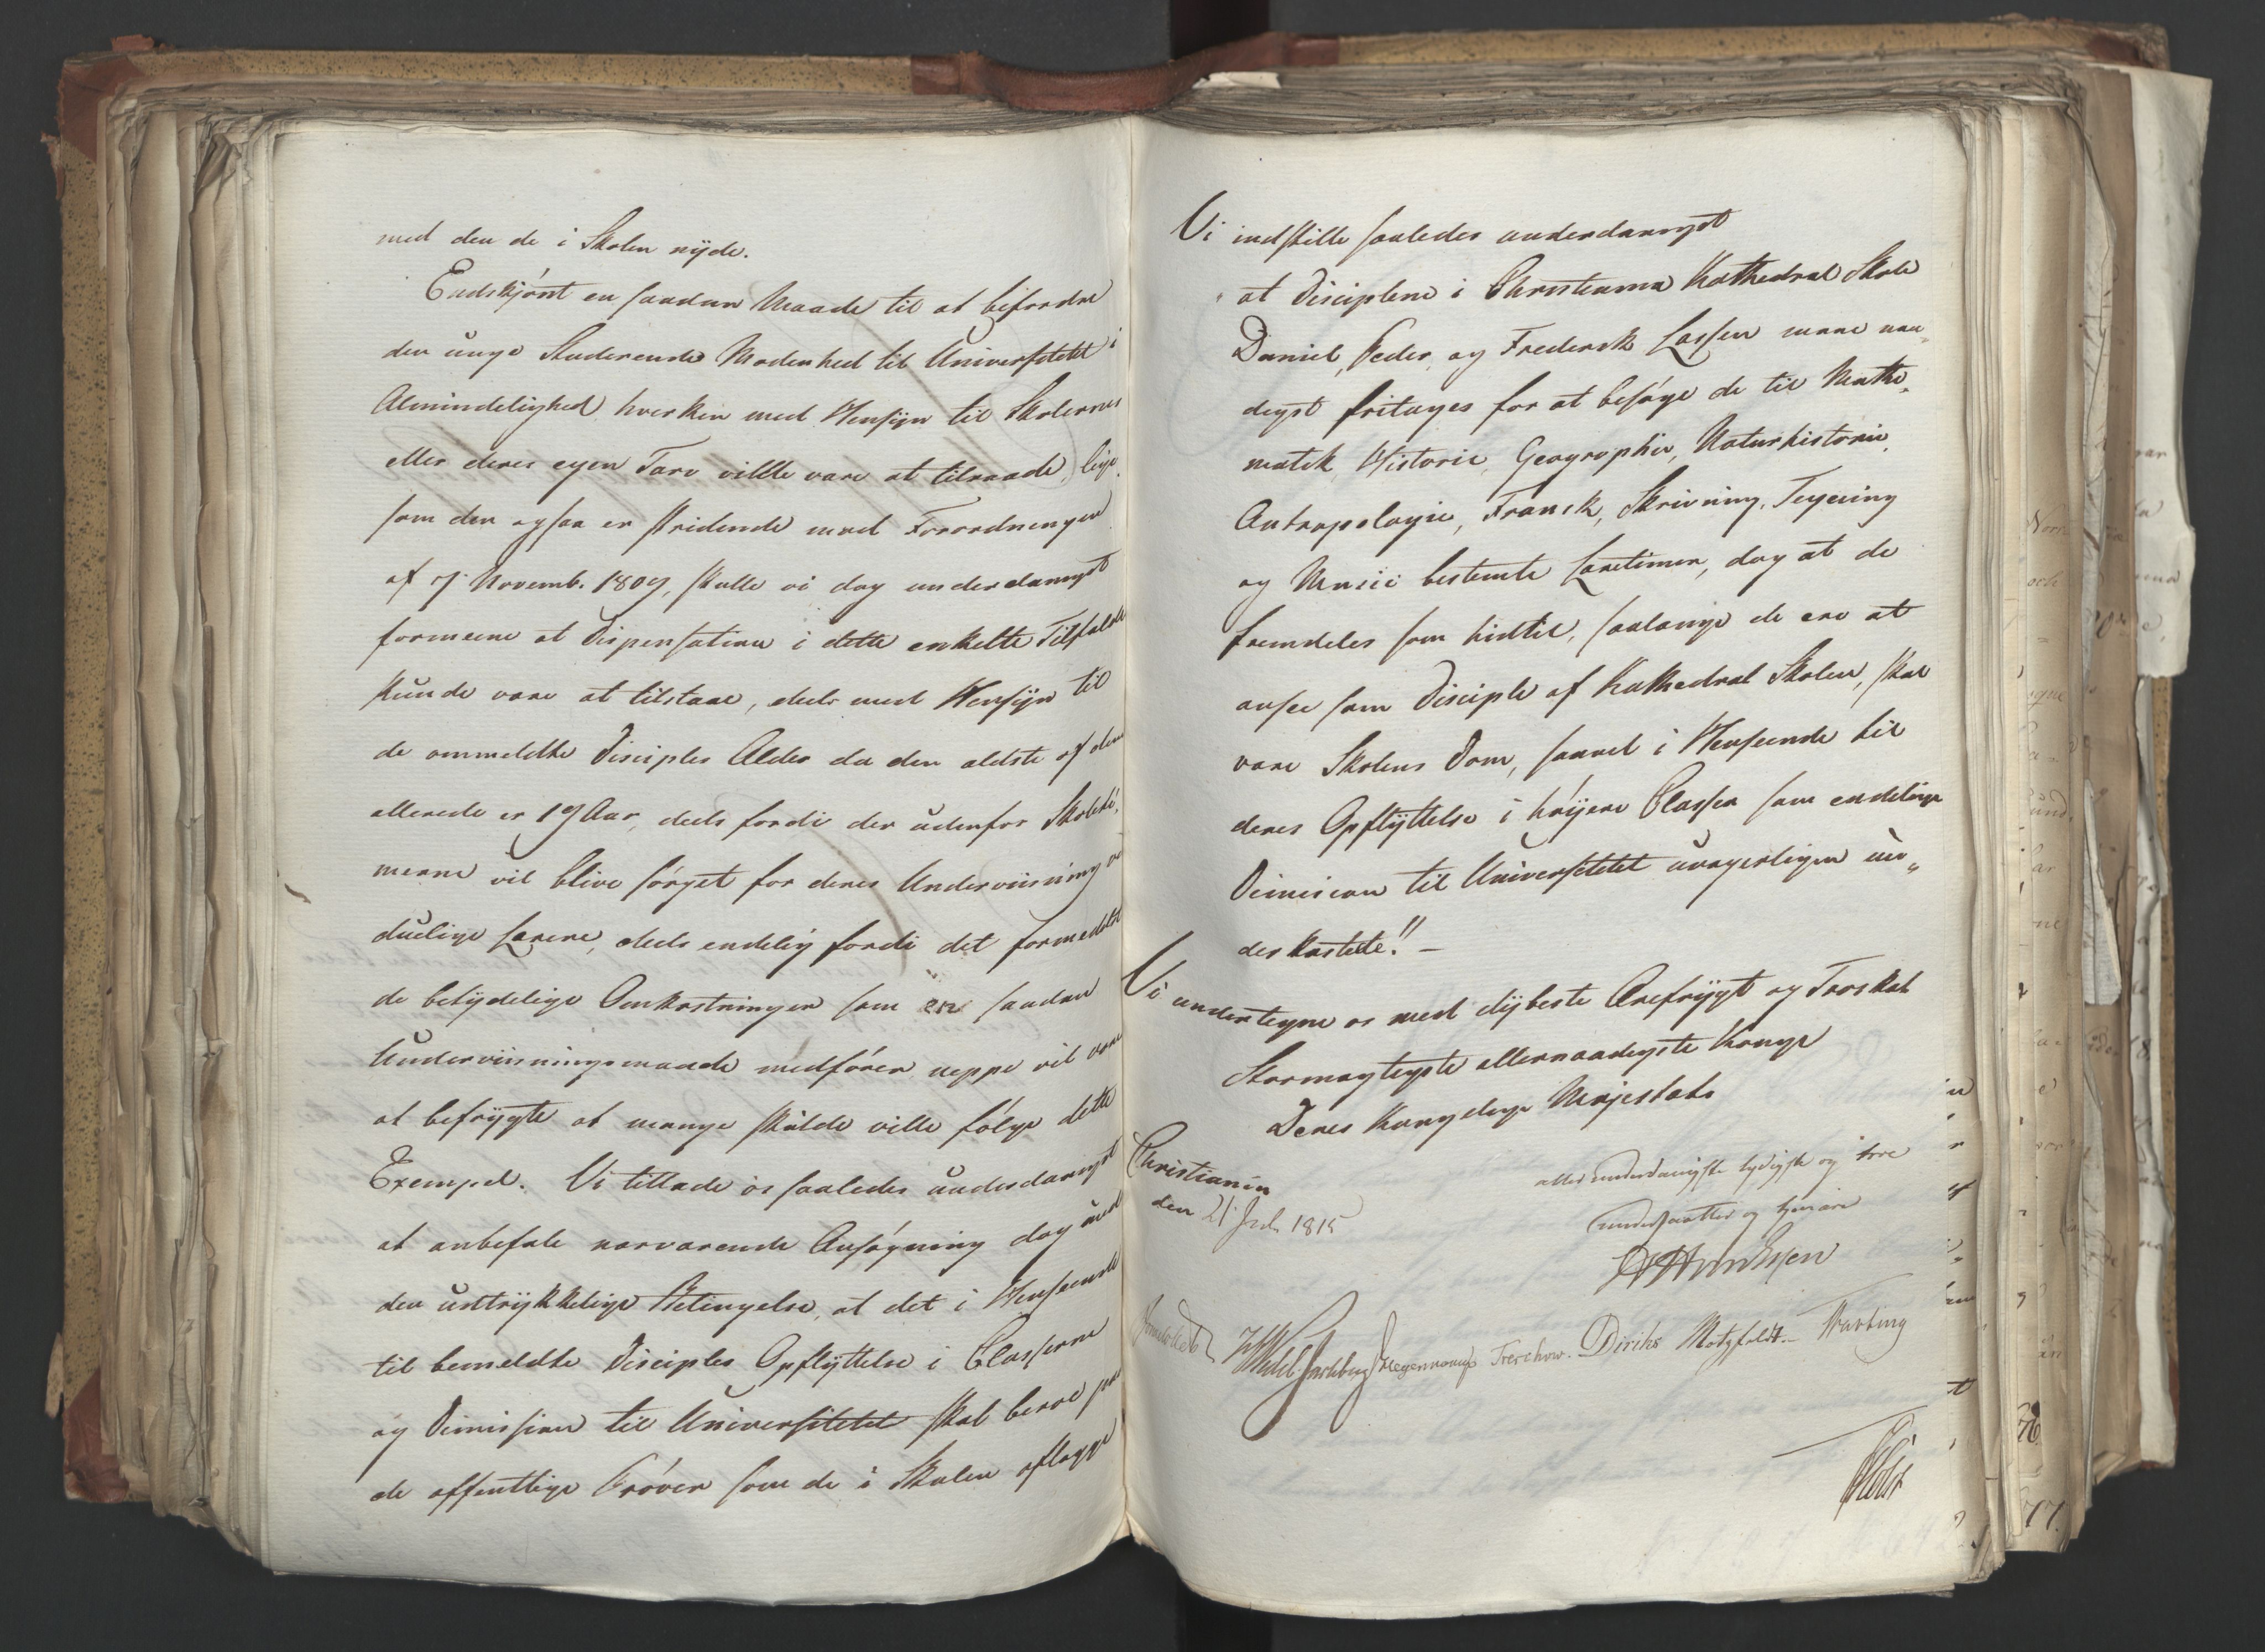 med den de i Skolen nyde.
Endskjönt en saadan Maade til at befordre
den unge Studerendes Modenhed til Universitetet i
Almindelighed hverken med Hensyn til Skolernes
eller deres egen Tarv vilde være at tilraade, lige
som den ogsaa er stridende mod Forordningen
af 7 Novemb. 1809, skulle vi dog underdanigst
formeene at Dispensation i dette enkelte Tilfælde
kunde være at tilstaae, deels med Hensyn til
de ommeldte Disciples Alder da den ældste af dem
allerede er 19 Aar, deels fordi der udenfor Skoleti-
merne vil blive sörget for deres Underviisning ved
duelige Lærere, deels endelig fordi det formedelst
de betydelige Omkostninger som en saadan
Underviisningsmaade medförer neppe vil være
at befrygte at mange skulde ville fölge dette
Exempel. Vi tillade os saaledes underdanigst
at anbefale nærværende Ansögning dog med
den udtrykkelige Betingelse, at det i Henseende
til bemeldte Disciples Opflyttelse i Classerne
og Dimission til Universitetet skal beroe paa
de offentlige Pröver som de i Skolen aflægge
Vi indstille saaledes underdanigst
at Disciplene i Christiania Kathedral Skole
Daniel, Peder, og Frederik Lassen maae naa„
digst fritages for at besöge de til Mathe„
matik, Historie, Geographie, Naturhistorie,
Antropologie, Fransk, Skrivning, Tegning
og Music bestemte Læretimer, dog at de
fremdeles som hidtil, saalænge de ere at
ansee som Disciple af Kathedral Skolen, skal
være Skolens Dom, saavel i Henseende til
deres Opflyttelse i höyere Classer som endelige
Dimission til Universitetet uvægerligen un„
derkastede!! —
Vi undertegne os med dybeste Ærefrygt og Troskab
Stormægtigste allernaadigste Konge
Deres Kongelige Majestæts
Christiania
den 21 Juli 1815
allerunderdanigste lydigste og troe
undersaatter og tjenere
Sommerhielm
HWedel Jarlsberg Hegermann Treschow. Diriks Motzfeldt.— Krabbing
Holst
76
77.